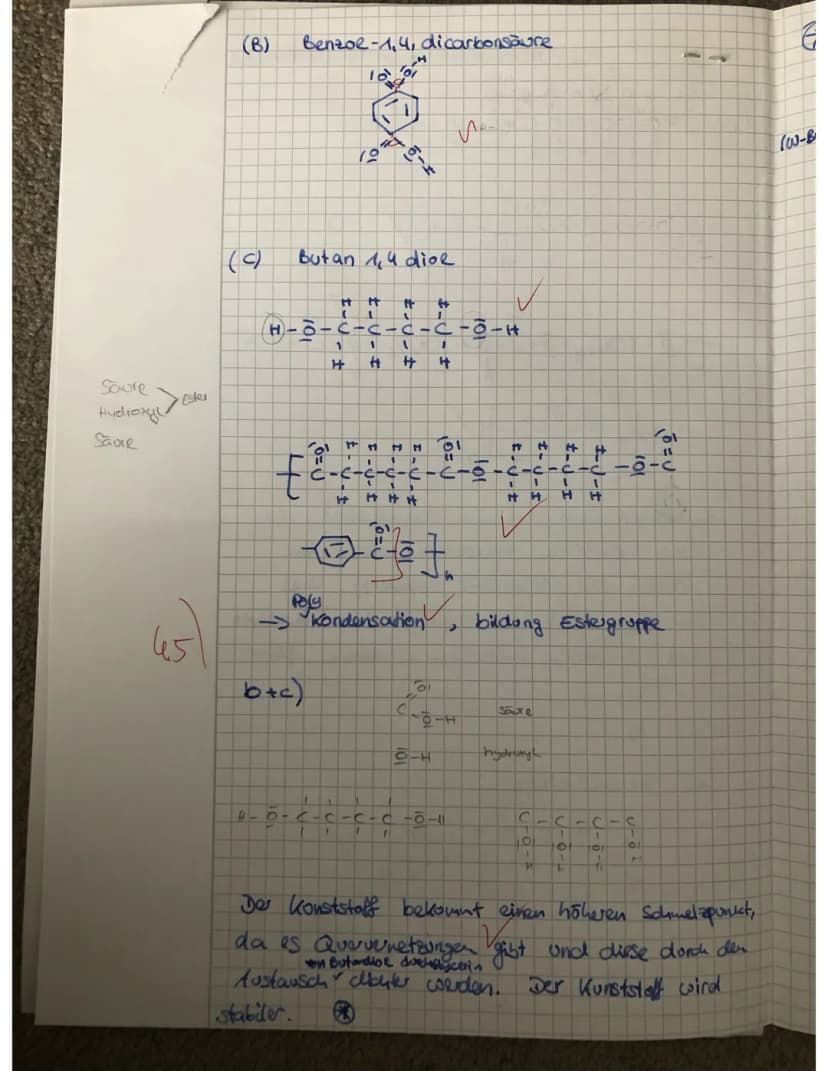 (B) Benzoe-1,4, dicarbonsäure
(C) Butan 1,4 diol
H-O-C-C-C-C-O-H
Säure
Hydroxyl
Ester
Säure
→ Kondensation, bildung Estergruppe
Poly
b+c)
Säure
hydroxyl
H-O-C-C-C-C-O-H
C-C-C-C
Der Kunststoff bekommt einen höheren Schmelzpunkt,
da es Quervernetzungen gibt und diese durch den
Austausch dichter werden. Der Kunststoff wird
stabiler.